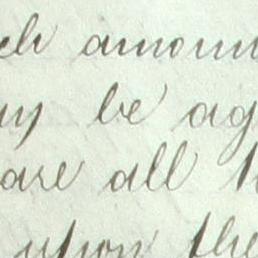 ch amoun
ay be ag
are all
upon the